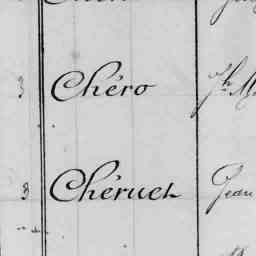 3 Chéro Jh M
3 Chéruel Jean